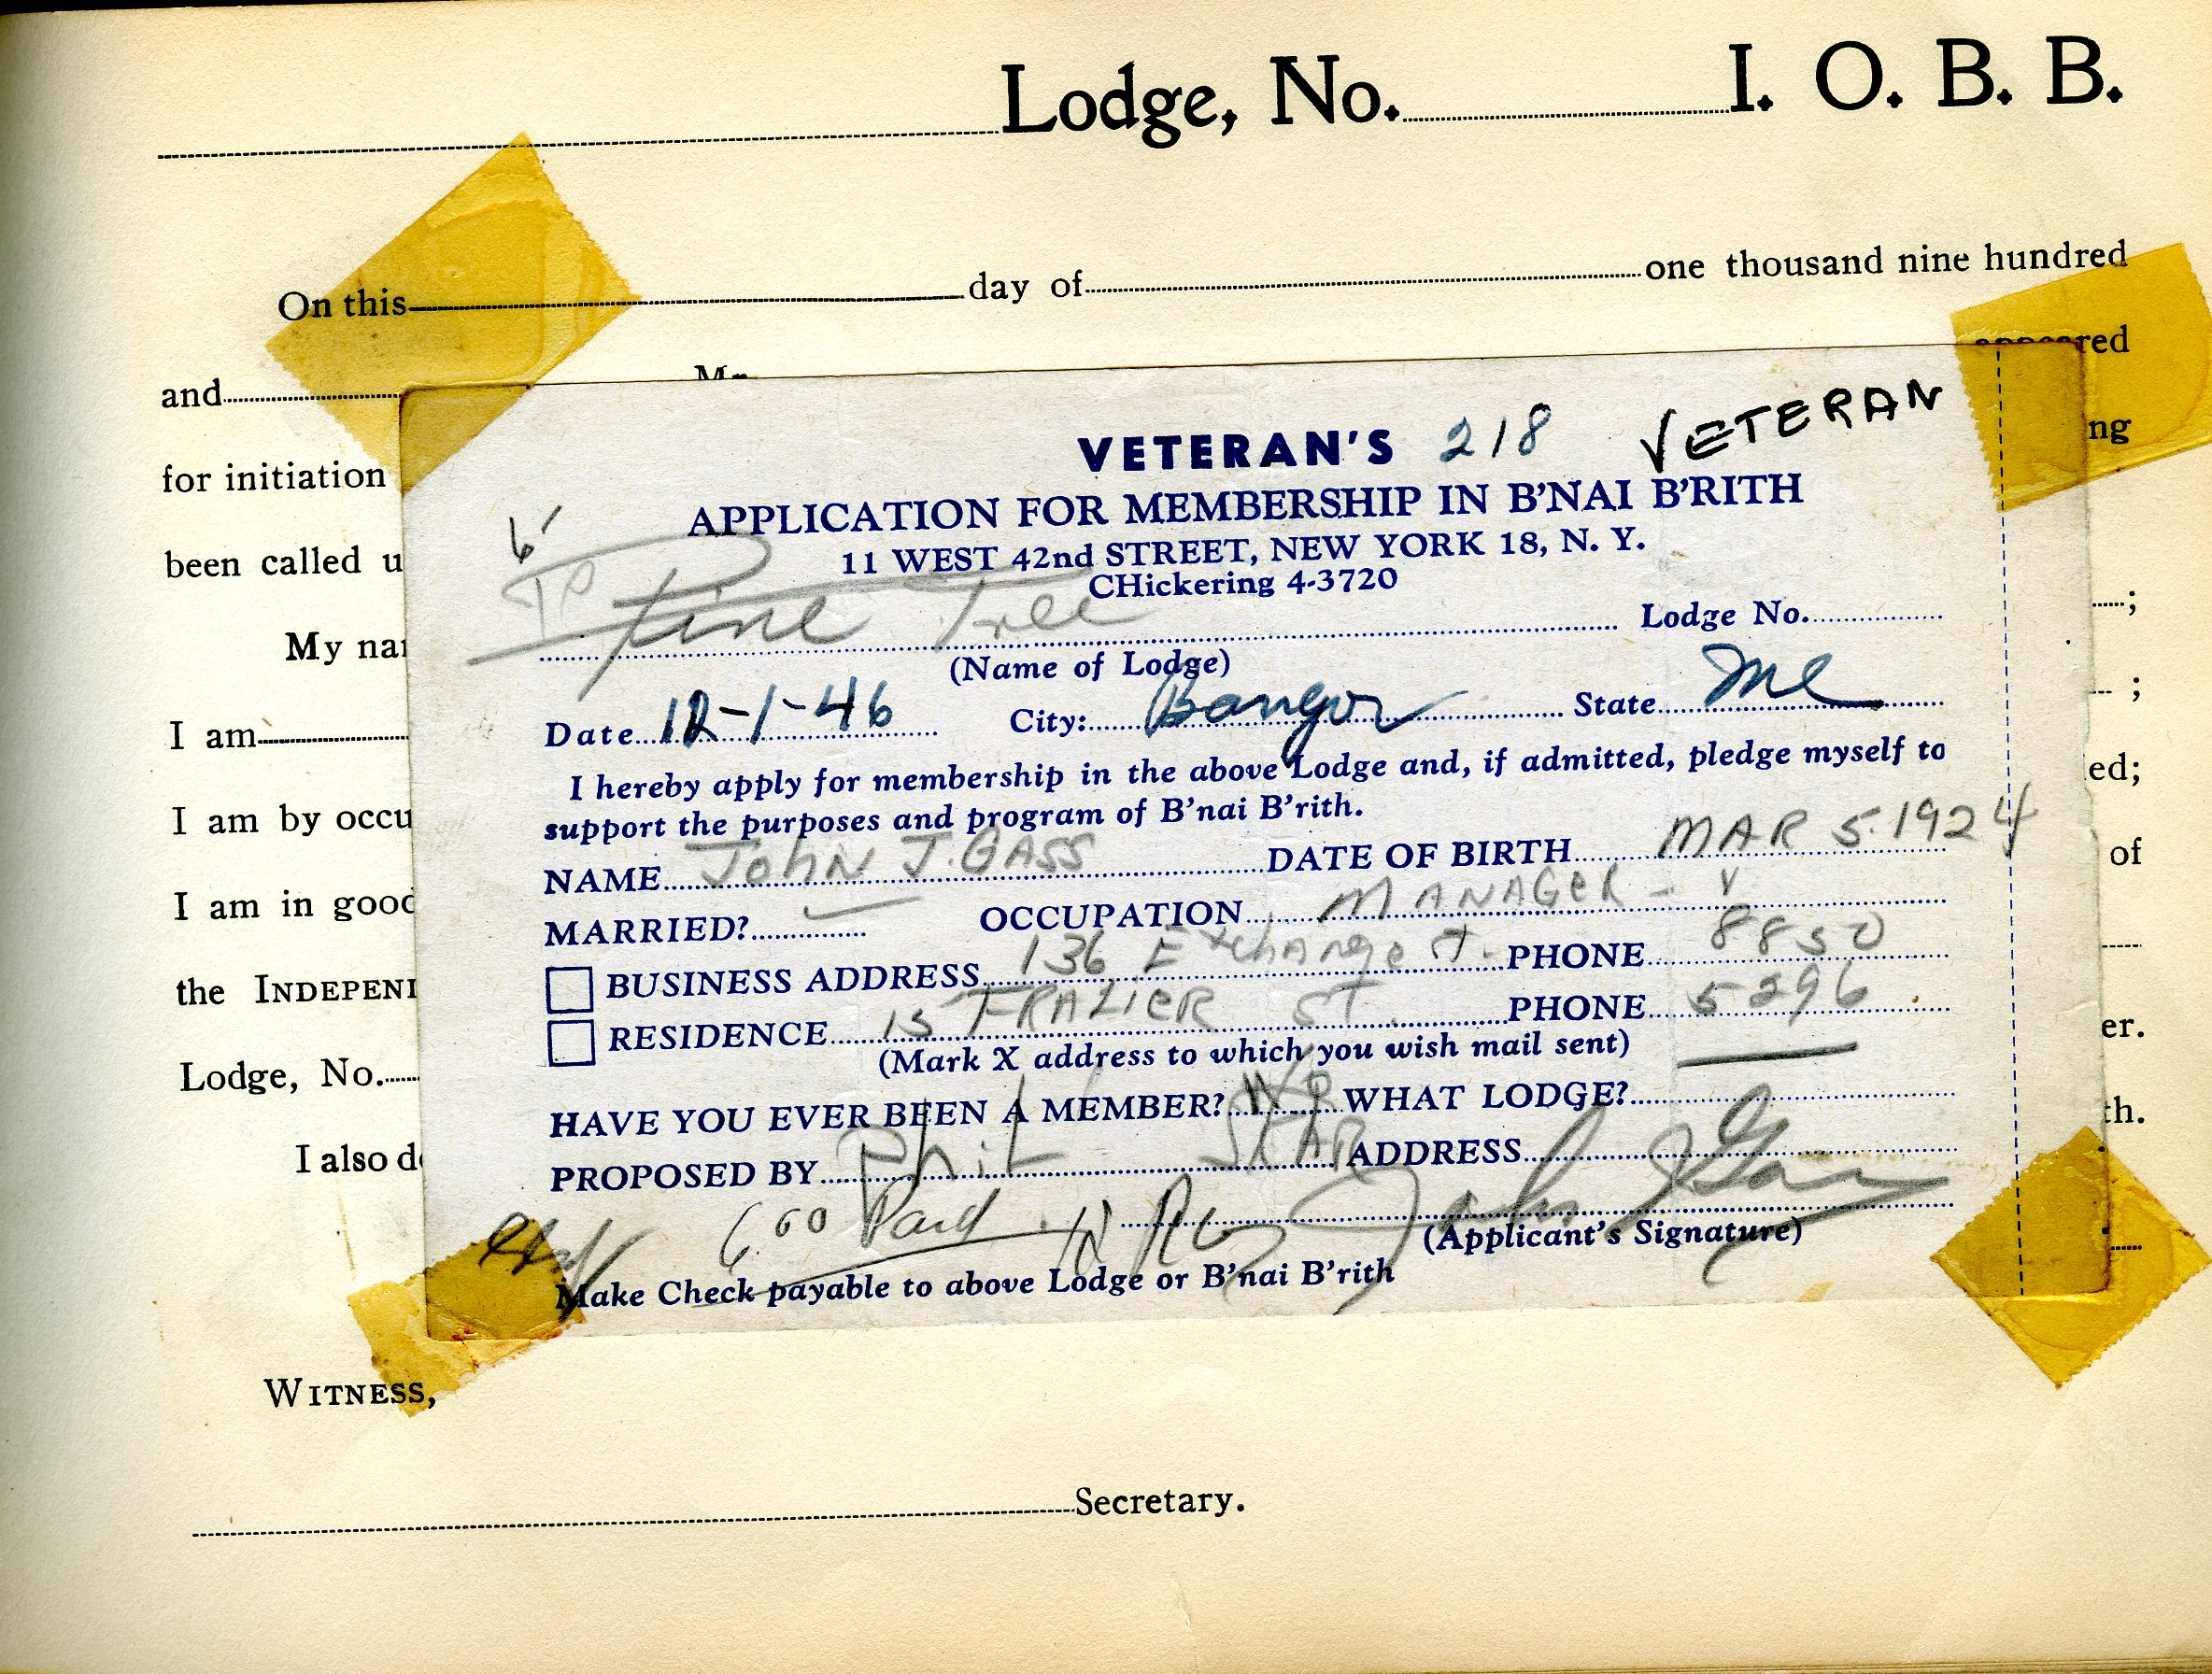 Lodge, No. I. O. B. B.
On this day of one thousand nine hundred
and Mr. appeared
for initiation ng
been called u
My nar ;
I am ;
I am by occu ed;
I am in good of
the INDEPENI
Lodge, No. er.
I also de th.
WITNESS,
Secretary.
VETERAN'S 218 VETERAN
APPLICATION FOR MEMBERSHIP IN B'NAI B'RITH
11 WEST 42nd STREET, NEW YORK 18, N. Y.
CHickering 4-3720
Pine Tree Lodge No.
(Name of Lodge)
Date 12-1-46 City: Bangor State Me
I hereby apply for membership in the above Lodge and, if admitted, pledge myself to
support the purposes and program of B'nai B'rith.
NAME JOHN J. GASS DATE OF BIRTH MAR 5. 1924
MARRIED? OCCUPATION MANAGER -
BUSINESS ADDRESS 136 Exchange St. PHONE 8850
RESIDENCE 15 FRAZIER ST. PHONE 5296
(Mark X address to which you wish mail sent)
HAVE YOU EVER BEEN A MEMBER? No WHAT LODGE?
PROPOSED BY Phil STAR ADDRESS
6.00 Paid John J Gass
(Applicant's Signature)
Make Check payable to above Lodge or B'nai B'rith